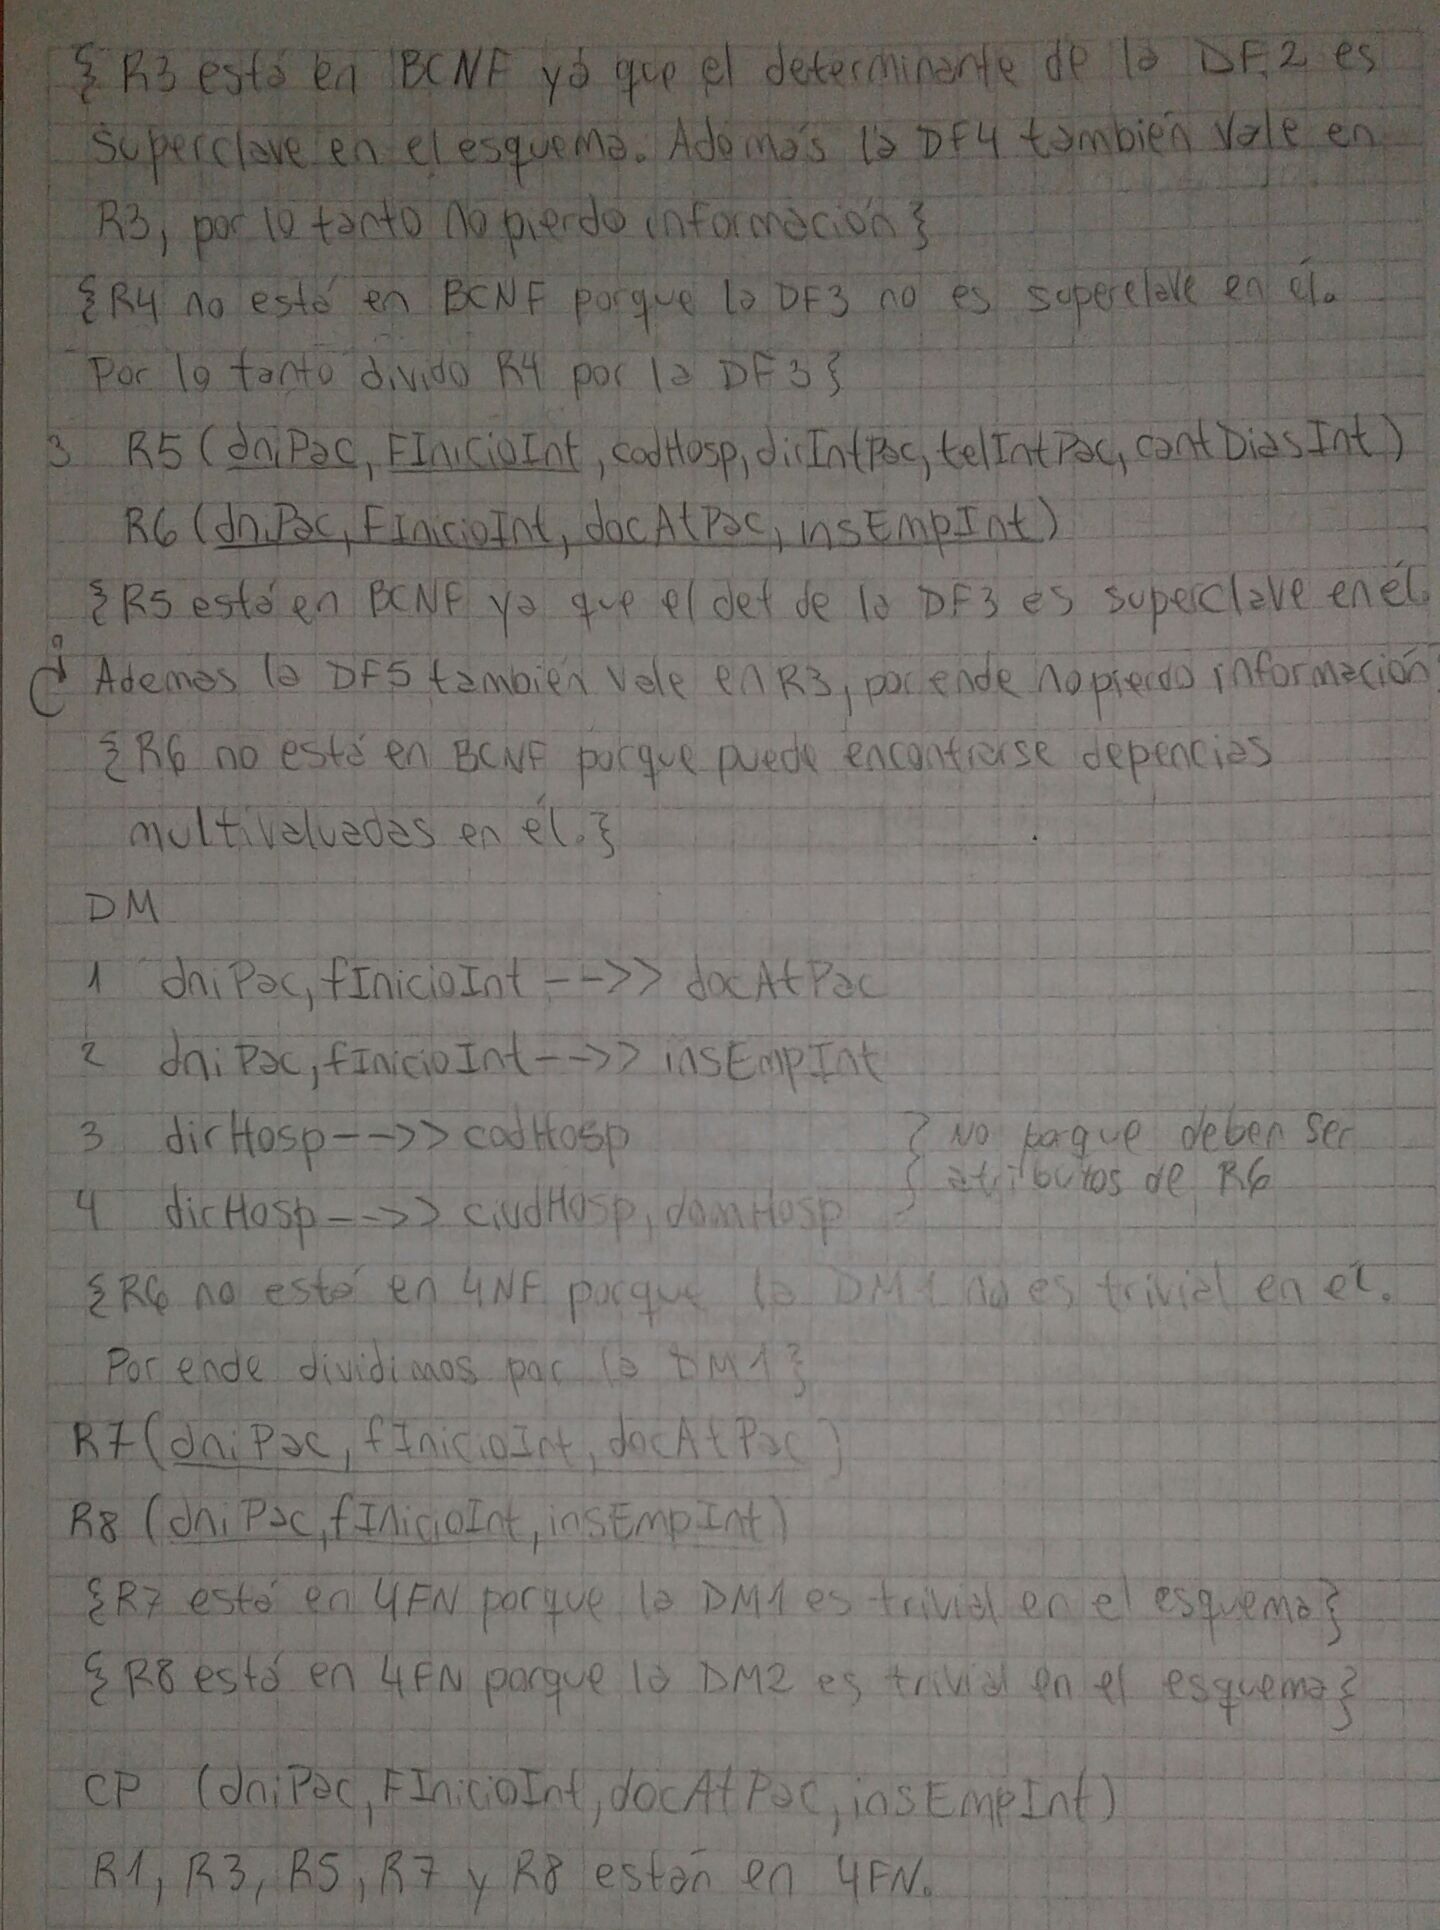 {R3 está en BCNF ya que el determinante de la DF2 es
superclave en el esquema. Además la DF4 también vale en
R3, por lo tanto no pierdo información}
{R4 no está en BCNF porque la DF3 no es superclave en él.
Por lo tanto divido R4 por la DF3}
3 R5 (dniPac, FInicioInt, codHosp, dirIntPac, telIntPac, cantDiasInt)
R6 (dniPac, FInicioInt, docAtPac, insEmpInt)
{R5 está en BCNF ya que el det de la DF3 es superclave en él.
Ademas la DF5 también vale en R3, por ende no pierdo información}
{R6 no está en BCNF porque puede encontrarse depencias
multivaluadas en él.}
DM
1 dniPac, fInicioInt -->> docAtPac
2 dniPac, fInicioInt -->> insEmpInt
3 dirHosp -->> codHosp { No porque deben ser
4 dirHosp -->> ciudHosp, domHosp } atributos de R6
{R6 no está en 4NF porque la DM1 no es trivial en él.
Por ende dividimos por la DM1}
R7 (dniPac, fInicioInt, docAtPac)
R8 (dniPac, fInicioInt, insEmpInt)
{R7 está en 4FN porque la DM1 es trivial en el esquema}
{R8 está en 4FN porque la DM2 es trivial en el esquema}
CP (dniPac, FInicioInt, docAtPac, insEmpInt)
R1, R3, R5, R7 y R8 están en 4FN.